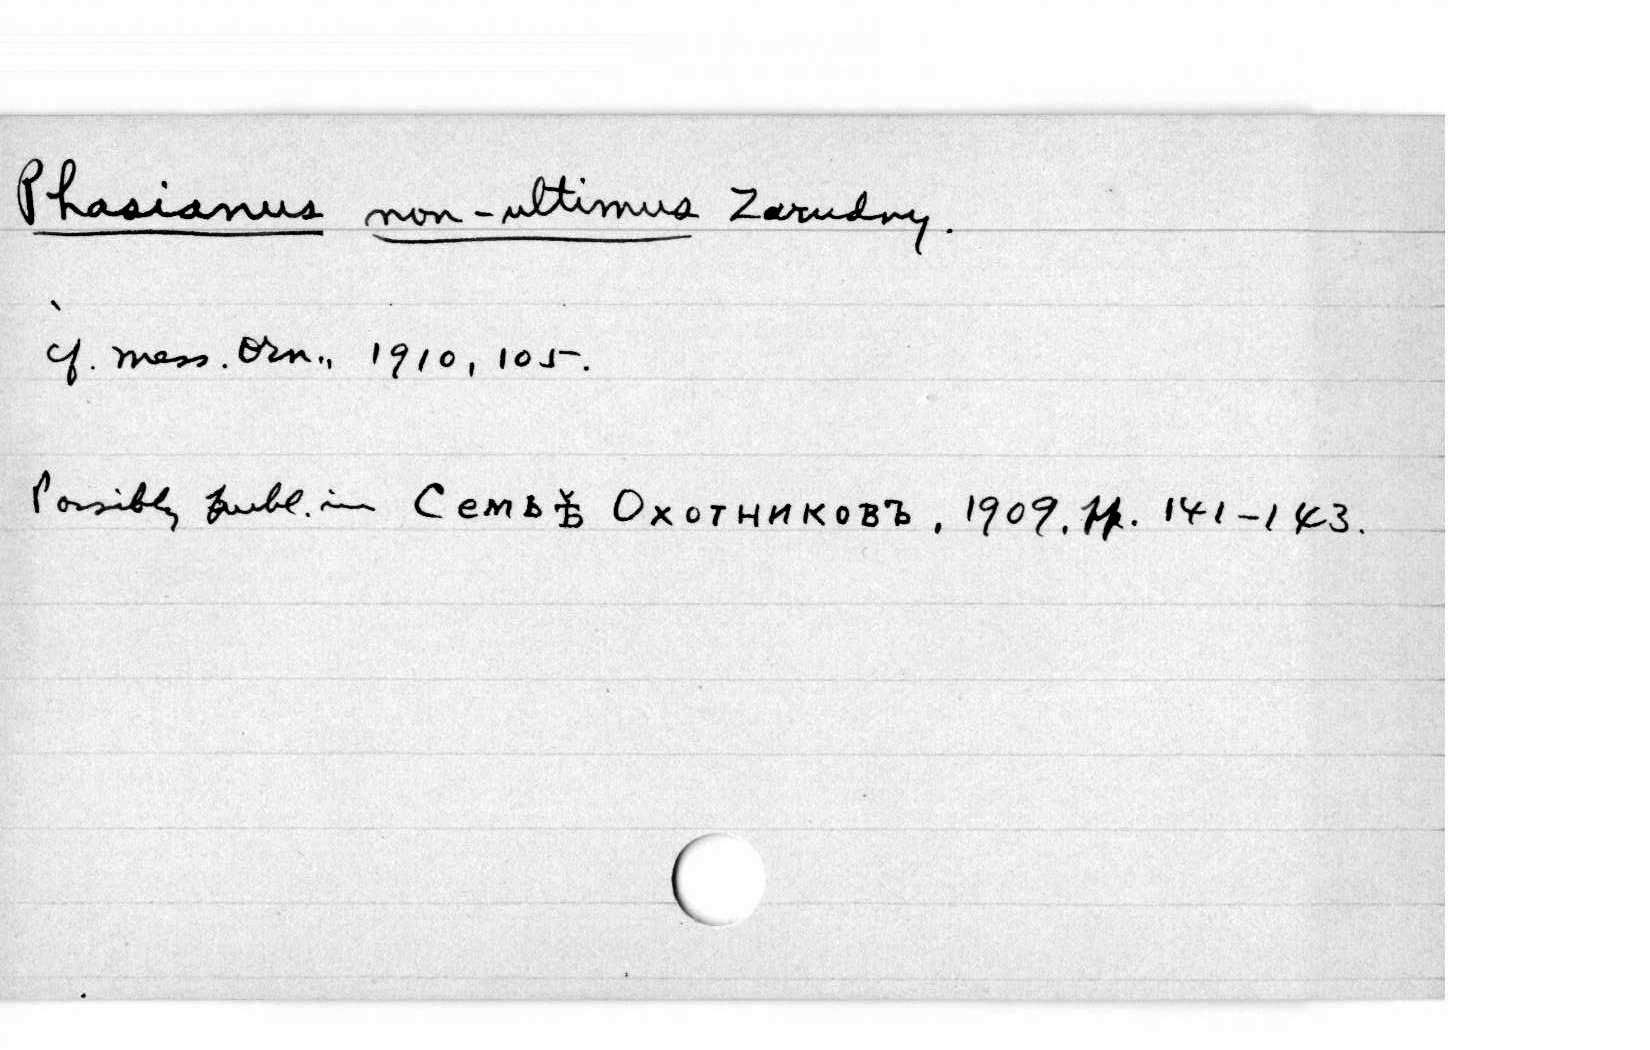 Phasianus non-ultimus Zarudny.
cf. Mess. Orn., 1910, 105.
Possibly publ. in Семьѣ Охотниковъ, 1909, pp. 141-143.